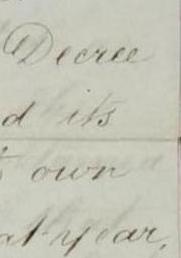 Decree
d its
t own
at year,